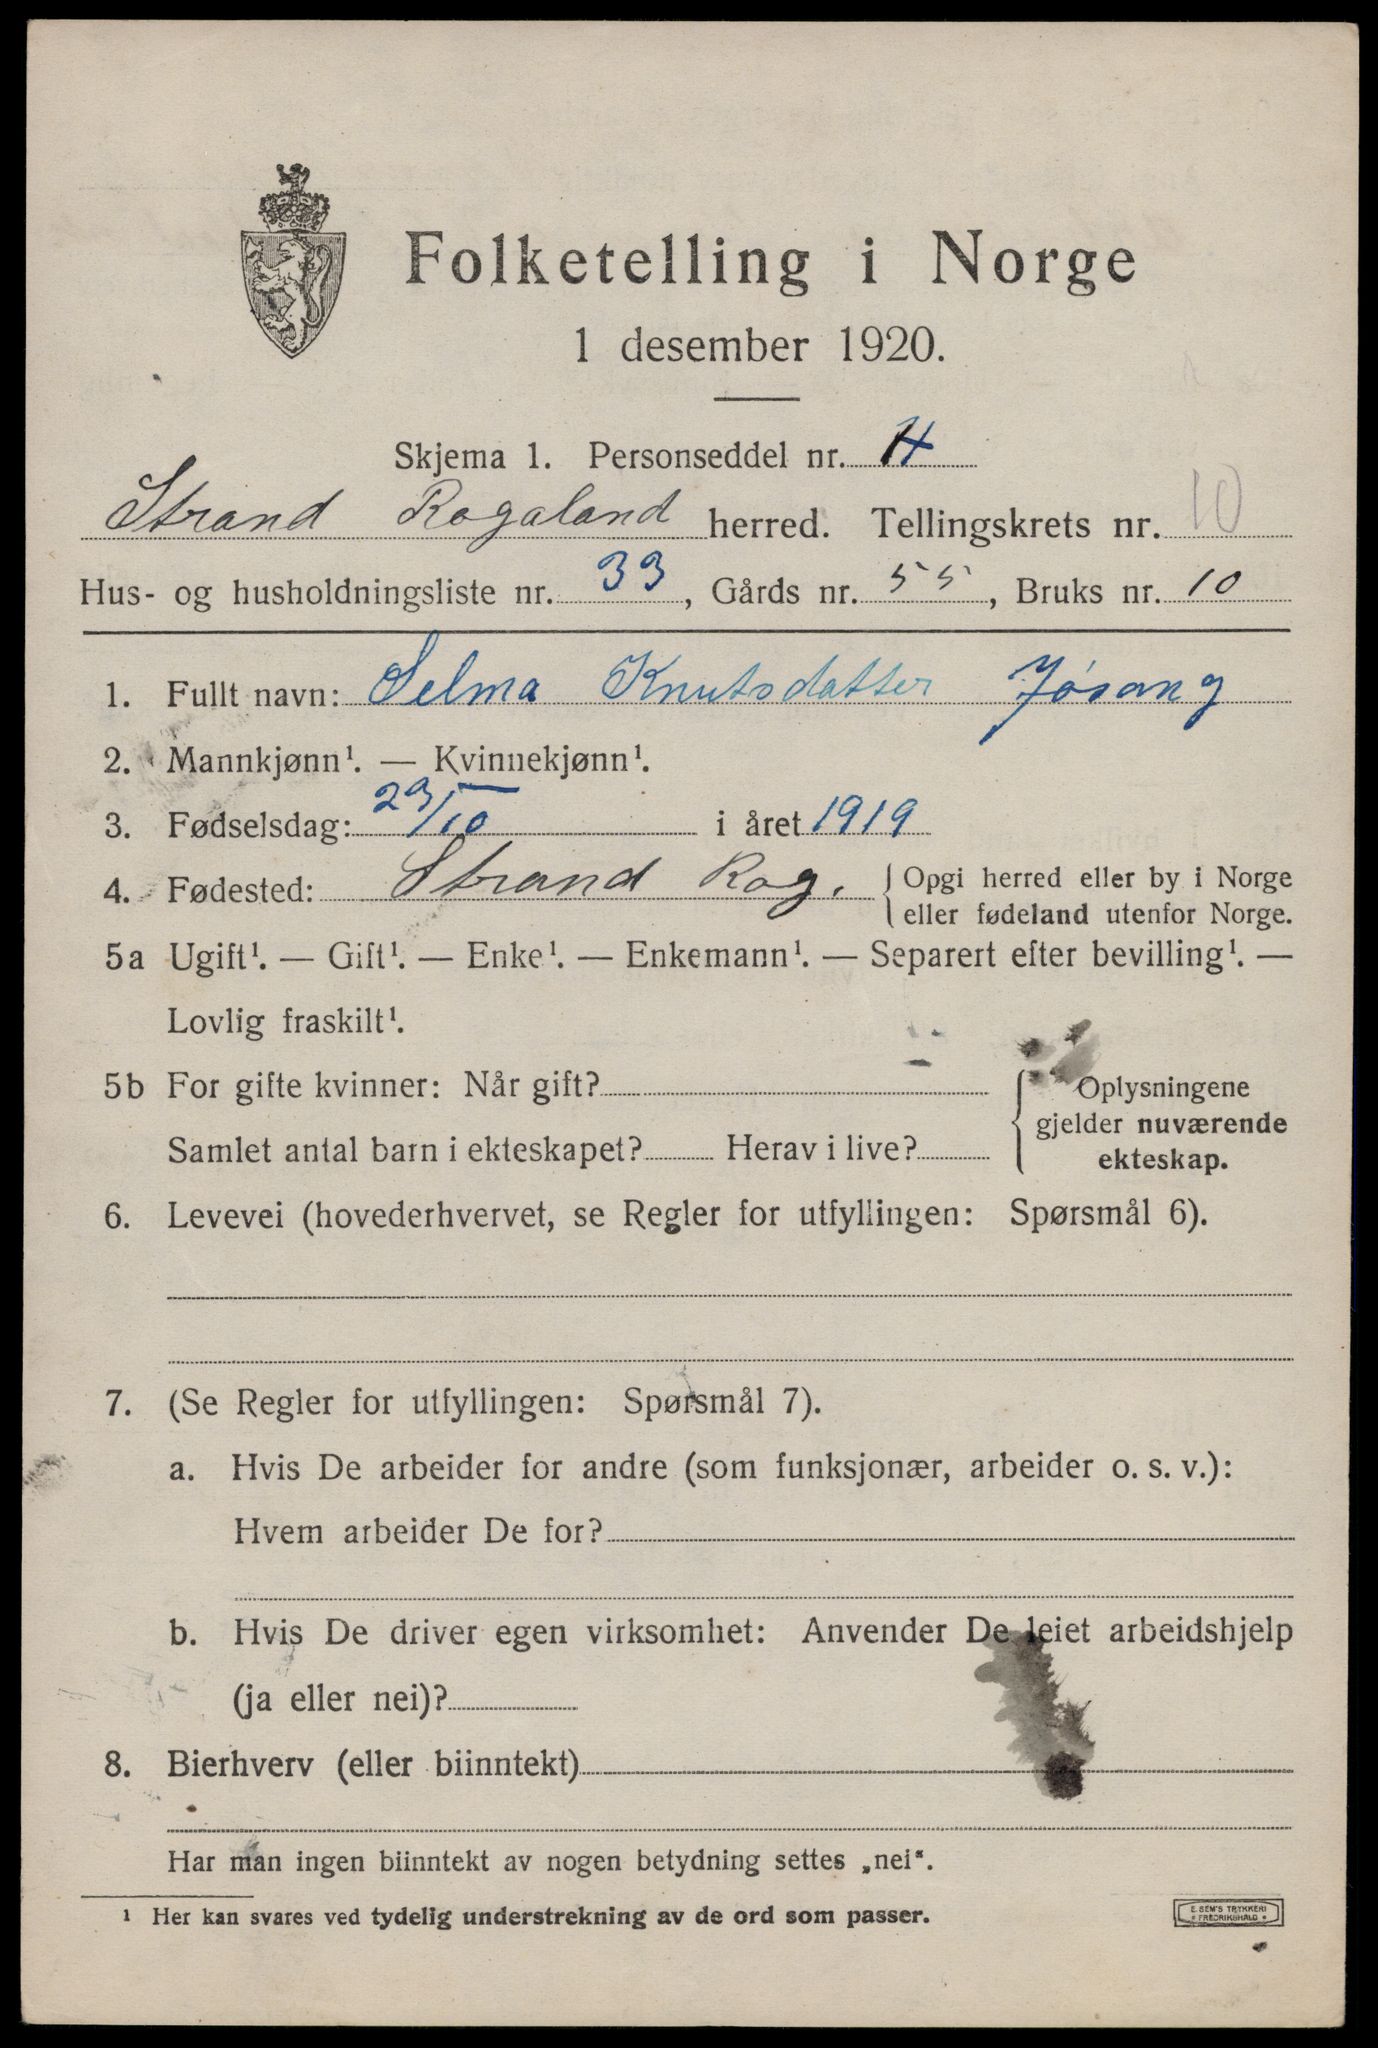 Folketelling i Norge
1 desember 1920.
Skjema 1. Personseddel nr. 4
Strand Rogaland herred. Tellingskrets nr. 10
Hus- og husholdningsliste nr. 33, Gårds nr. 55, Bruks nr. 10
1. Fullt navn: Selma Knutsdatter Jøsang
2. Mannkjønn¹. — Kvinnekjønn¹.
3. Fødselsdag: 29/10 i året 1919
4. Fødested: Strand Rog. { Opgi herred eller by i Norge
eller fødeland utenfor Norge.
5a Ugift¹. — Gift¹. — Enke¹. — Enkemann¹. — Separert efter bevilling¹. —
Lovlig fraskilt¹.
5b For gifte kvinner: Når gift? { Oplysningene
gjelder nuværende
Samlet antal barn i ekteskapet? Herav i live? ekteskap.
6. Levevei (hovederhvervet, se Regler for utfyllingen: Spørsmål 6).
7. (Se Regler for utfyllingen: Spørsmål 7).
a. Hvis De arbeider for andre (som funksjonær, arbeider o. s. v.):
Hvem arbeider De for?
b. Hvis De driver egen virksomhet: Anvender De leiet arbeidshjelp
(ja eller nei)?
8. Bierhverv (eller biinntekt)
Har man ingen biinntekt av nogen betydning settes „nei“.
¹ Her kan svares ved tydelig understrekning av de ord som passer.
E. SEM'S TRYKKERI
• FREDRIKSHALD •